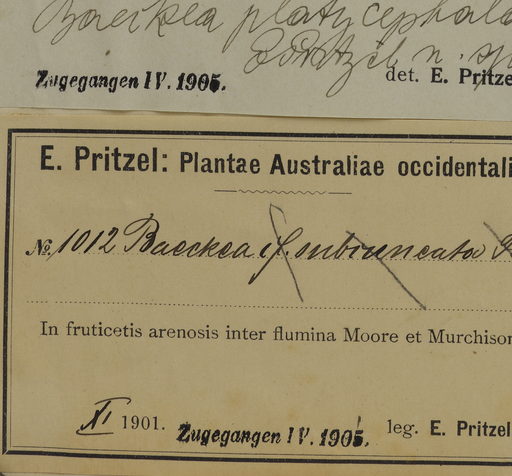 Baeckea platycephala
E. Pritzel n. sp
Zugegangen IV. 1905.
det. E. Pritze
E. Pritzel: Plantae Australiae occidentali
№. 1012 Baeckea cf. subuncata
In fruticetis arenosis inter flumina Moore et Murchison
XI 1901.
Zugegangen IV. 1905.
leg. E. Pritzel